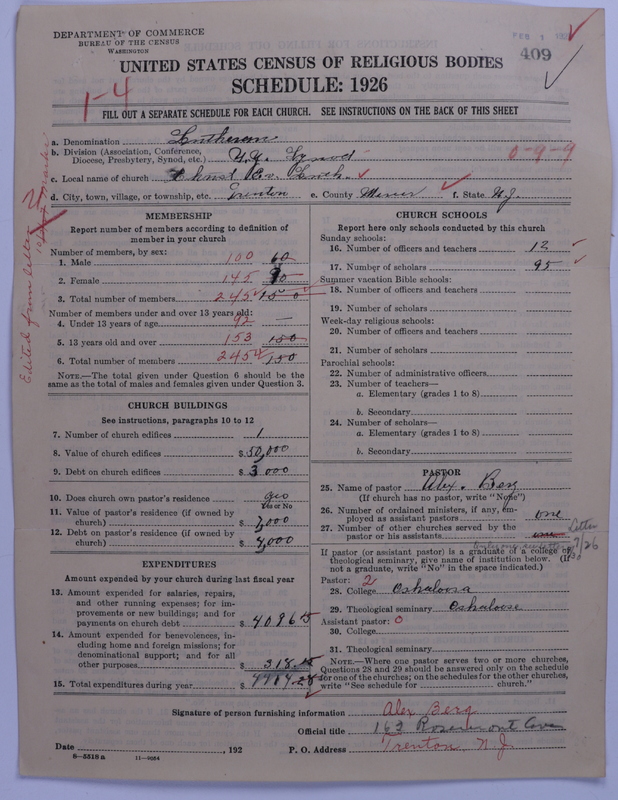 DEPARTMENT OF COMMERCE
BUREAU OF THE CENSUS
WASHINGTON
FEB 1
409
UNITED STATES CENSUS OF RELIGIOUS BODIES
SCHEDULE: 1926
1-4
FILL OUT A SEPARATE SCHEDULE FOR EACH CHURCH. SEE INSTRUCTIONS ON THE BACK OF THIS SHEET
a. Denomination Lutheran
b. Division (Association, Conference, Diocese, Presbytery, Synod, etc.) N.Y. Synod 0-9-9
c. Local name of church Christ Ev. Luth.
d. City, town, village, or township, etc. Trenton e. County Mercer f. State N.J.
Edited from letter
MEMBERSHIP
Report number of members according to definition of
member in your church
Number of members, by sex:
1. Male 100 60
2. Female 145 90
3. Total number of members 245 150
Number of members under and over 13 years old:
4. Under 13 years of age 92 —
5. 13 years old and over 153 150
6. Total number of members 245 150
NOTE.—The total given under Question 6 should be the
same as the total of males and females given under Question 3.
CHURCH BUILDINGS
See instructions, paragraphs 10 to 12
7. Number of church edifices 1
8. Value of church edifices $50,000
9. Debt on church edifices $3000
10. Does church own pastor's residence yes
Yes or No
11. Value of pastor's residence (if owned by
church) $7,000
12. Debt on pastor's residence (if owned by
church) $4,000
EXPENDITURES
Amount expended by your church during last fiscal year
13. Amount expended for salaries, repairs,
and other running expenses; for im-
provements or new buildings; and for
payments on church debt $
14. Amount expended for benevolences, in-
cluding home and foreign missions; for
denominational support; and for all
other purposes $
15. Total expenditures during year $
CHURCH SCHOOLS
Report here only schools conducted by this church
Sunday schools:
16. Number of officers and teachers 12
17. Number of scholars 95
Summer vacation Bible schools:
18. Number of officers and teachers
19. Number of scholars
Week-day religious schools:
20. Number of officers and teachers
21. Number of scholars
Parochial schools:
22. Number of administrative officers
23. Number of teachers—
a. Elementary (grades 1 to 8)
b. Secondary
24. Number of scholars—
a. Elementary (grades 1 to 8)
b. Secondary
PASTOR
25. Name of pastor Alex. Berg
(If church has no pastor, write "None")
26. Number of ordained ministers, if any, em-
ployed as assistant pastors one
27. Number of other churches served by the
pastor or his assistants one
Letter
7/26
If pastor (or assistant pastor) is a graduate of a college or
theological seminary, give name of institution below. (If
not a graduate, write "No" in the space indicated.)
Pastor: 2
28. College Oskaloosa
29. Theological seminary Oskaloosa
Assistant pastor: 0
30. College
31. Theological seminary
NOTE.—Where one pastor serves two or more churches,
Questions 28 and 29 should be answered only on the schedule
for one of the churches; on the schedules for the other churches,
write "See schedule for church."
Signature of person furnishing information Alex Berg
Official title 163 Rosemont Ave
Date , 192 P. O. Address Trenton N J
8—5518 a 11—9054